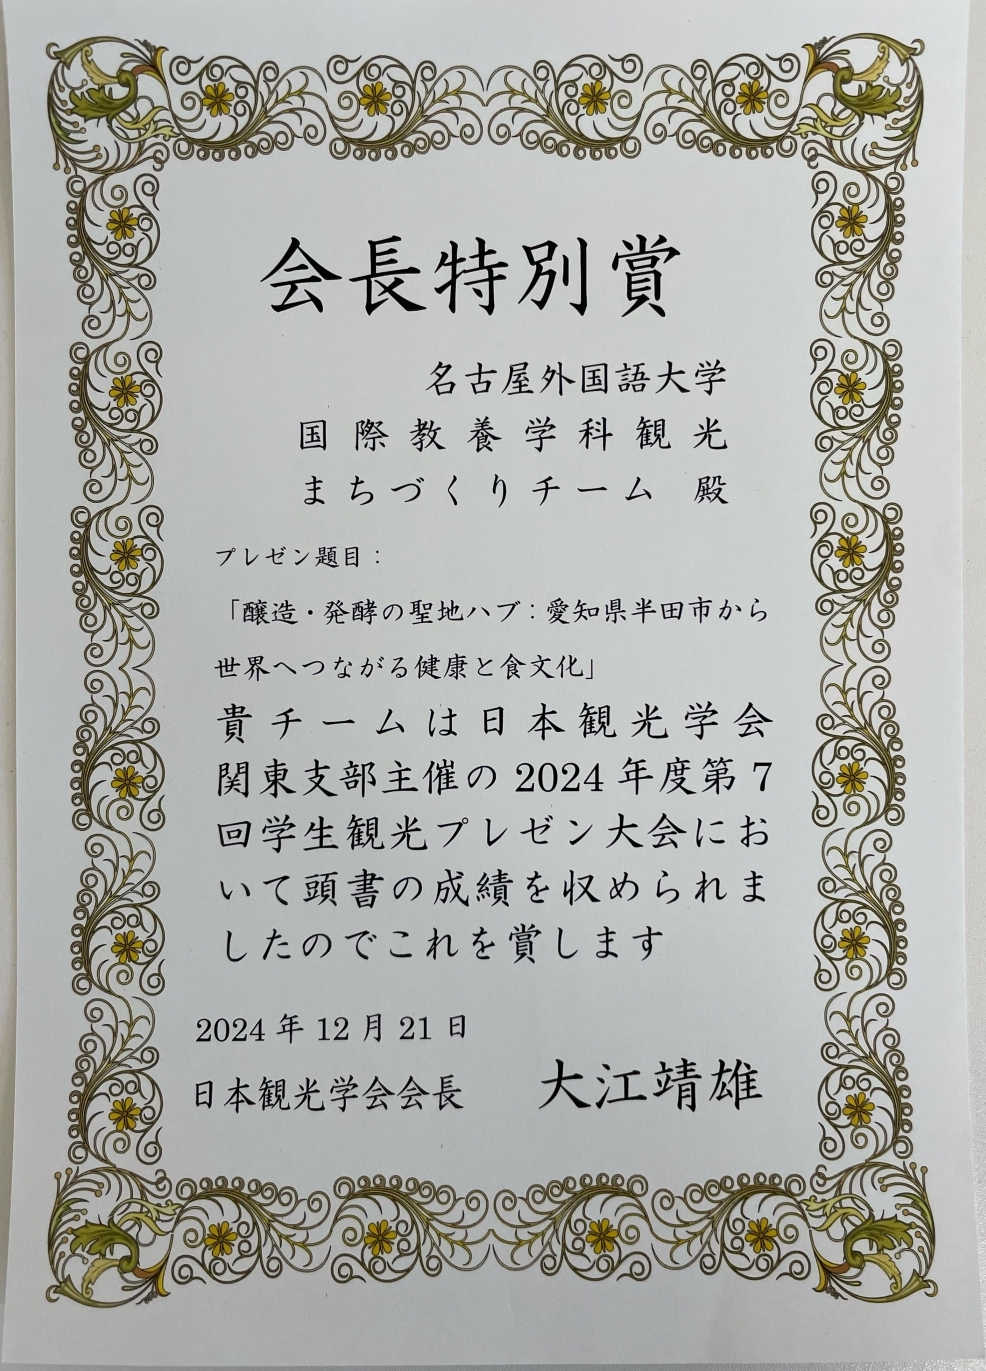 会長特別賞
名古屋外国語大学
国際教養学科観光
まちづくりチーム 殿
プレゼン題目：
「醸造・発酵の聖地ハブ：愛知県半田市から
世界へつながる健康と食文化」
貴チームは日本観光学会
関東支部主催の 2024 年度第 7
回学生観光プレゼン大会にお
いて頭書の成績を収められま
したのでこれを賞します
2024 年 12 月 21 日
日本観光学会会長 大江靖雄